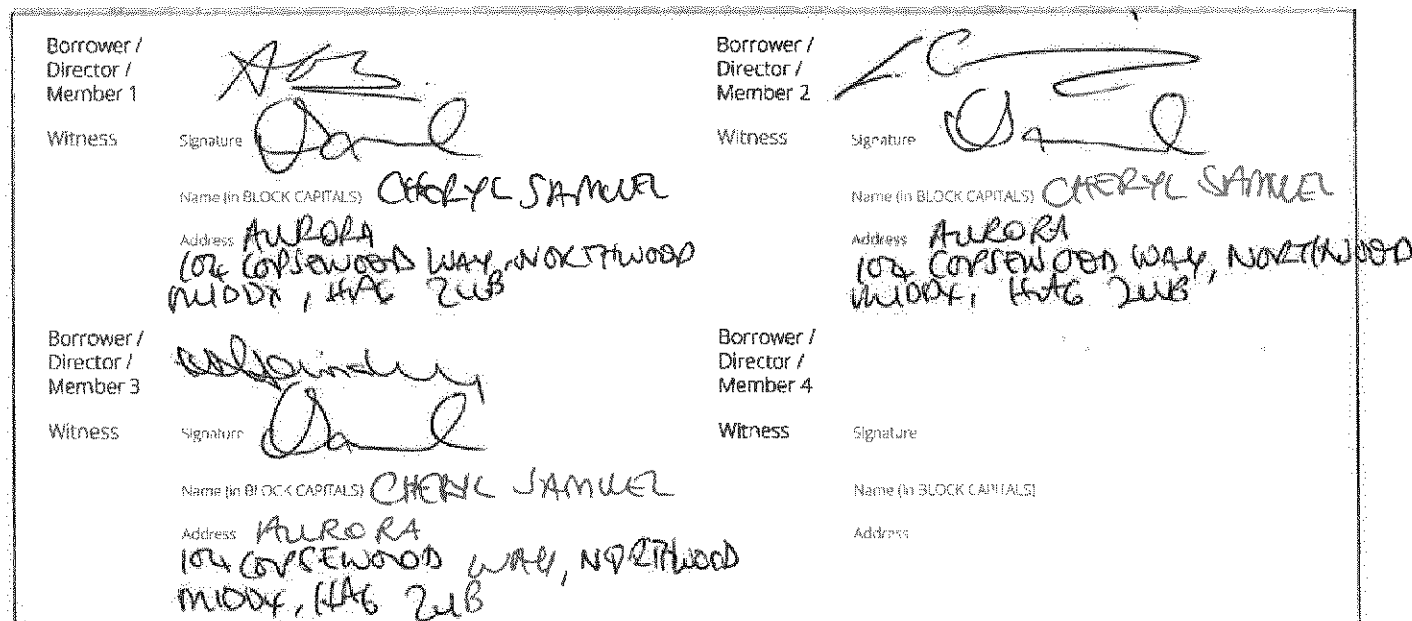 Borrower /
Director /
Member 1
Witness
Signature
Name (in BLOCK CAPITALS) CHERYL SAMUEL
Address AURORA
COPSEWOOD WAY, NORTHWOOD
MIDDX, HA6 2UB
Borrower /
Director /
Member 2
Witness
Signature
Name (in BLOCK CAPITALS) CHERYL SAMUEL
Address AURORA
COPSEWOOD WAY, NORTHWOOD
MIDDX, HA6 2UB
Borrower /
Director /
Member 3
Witness
Signature
Name (in BLOCK CAPITALS) CHERYL SAMUEL
Address AURORA
COPSEWOOD WAY, NORTHWOOD
MIDDX, HA6 2UB
Borrower /
Director /
Member 4
Witness
Signature
Name (in BLOCK CAPITALS)
Address